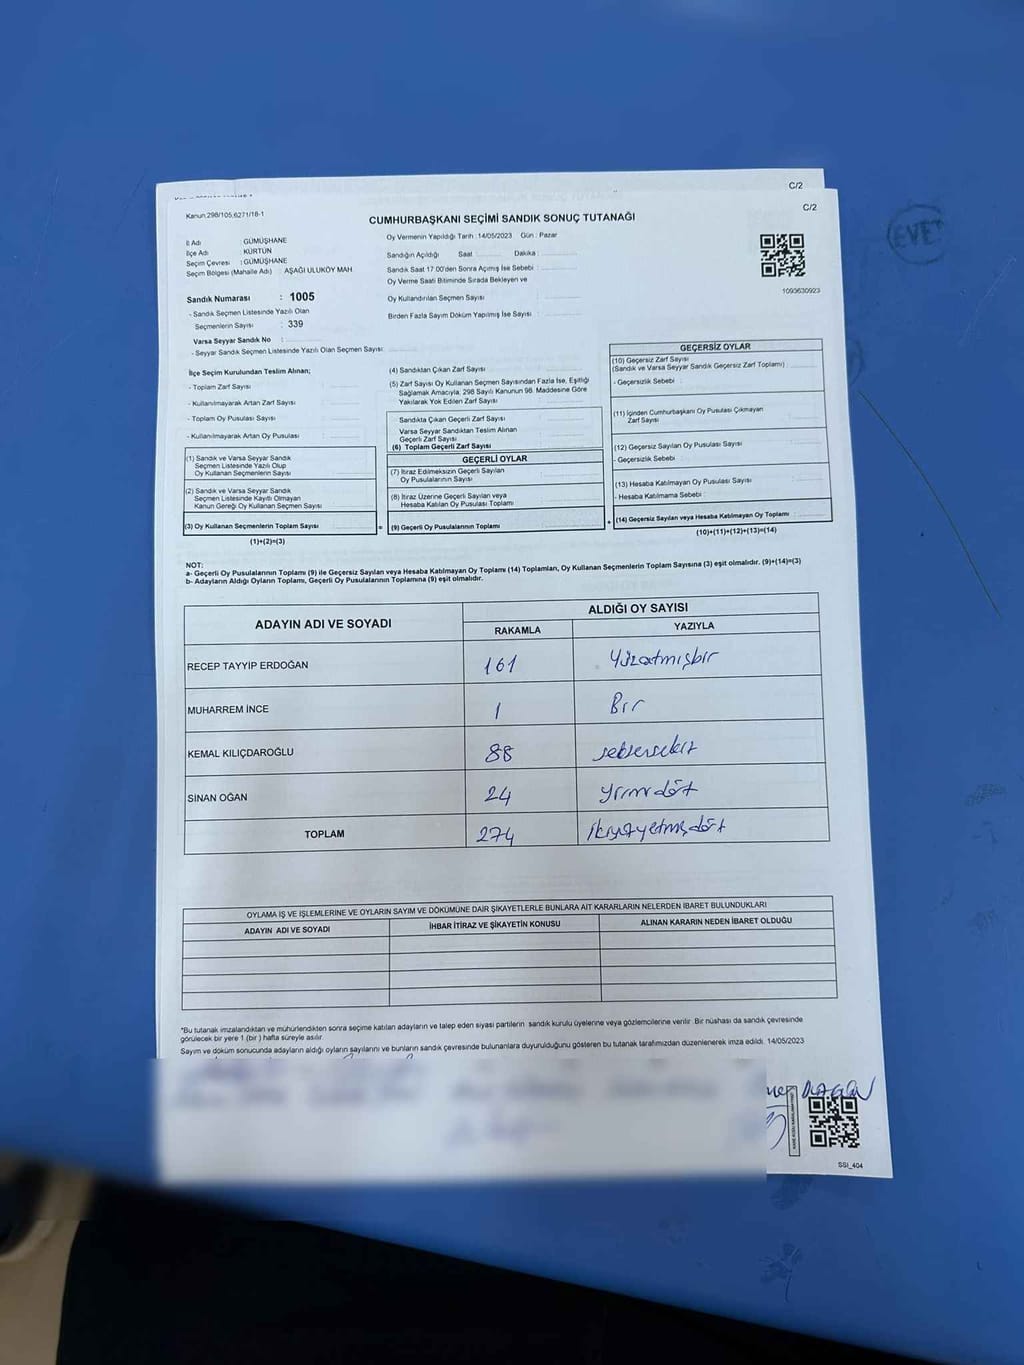 C/2
C/2
Kanun:298/105,6271/18-1
CUMHURBAŞKANI SEÇİMİ SANDIK SONUÇ TUTANAĞI
İl Adı : GÜMÜŞHANE
İlçe Adı : KÜRTÜN
Seçim Çevresi : GÜMÜŞHANE
Seçim Bölgesi (Mahalle Adı) : AŞAĞI ULUKÖY MAH
Sandık Numarası : 1005
- Sandık Seçmen Listesinde Yazılı Olan
Seçmenlerin Sayısı : 339
Varsa Seyyar Sandık No :
- Seyyar Sandık Seçmen Listesinde Yazılı Olan Seçmen Sayısı:
Oy Vermenin Yapıldığı Tarih : 14/05/2023 Gün : Pazar
Sandığın Açıldığı Saat : Dakika :
Sandık Saat 17.00'den Sonra Açılmış İse Sebebi :
Oy Verme Saati Bitiminde Sırada Bekleyen ve
Oy Kullandırılan Seçmen Sayısı :
Birden Fazla Sayım Döküm Yapılmış İse Sayısı :
1093630923
EVET
İlçe Seçim Kurulundan Teslim Alınan;
- Toplam Zarf Sayısı :
- Kullanılmayarak Artan Zarf Sayısı :
- Toplam Oy Pusulası Sayısı :
- Kullanılmayarak Artan Oy Pusulası :
(1) Sandık ve Varsa Seyyar Sandık
Seçmen Listesinde Yazılı Olup
Oy Kullanan Seçmenlerin Sayısı :
(2) Sandık ve Varsa Seyyar Sandık
Seçmen Listesinde Kayıtlı Olmayan
Kanun Gereği Oy Kullanan Seçmen Sayısı :
(3) Oy Kullanan Seçmenlerin Toplam Sayısı :
(1)+(2)=(3)
(4) Sandıktan Çıkan Zarf Sayısı :
(5) Zarf Sayısı Oy Kullanan Seçmen Sayısından Fazla İse, Eşitliği
Sağlamak Amacıyla; 298 Sayılı Kanunun 98. Maddesine Göre
Yakılarak Yok Edilen Zarf Sayısı :
Sandıkta Çıkan Geçerli Zarf Sayısı :
Varsa Seyyar Sandıktan Teslim Alınan
Geçerli Zarf Sayısı :
(6) Toplam Geçerli Zarf Sayısı :
GEÇERLİ OYLAR
(7) İtiraz Edilmeksizin Geçerli Sayılan
Oy Pusulasının Sayısı :
(8) İtiraz Üzerine Geçerli Sayılan veya
Hesaba Katılan Oy Pusulası Toplamı :
= (9) Geçerli Oy Pusulalarının Toplamı :
GEÇERSİZ OYLAR
(10) Geçersiz Zarf Sayısı
(Sandık ve Varsa Seyyar Sandık Geçersiz Zarf Toplamı) :
- Geçersizlik Sebebi :
(11) İçinden Cumhurbaşkanı Oy Pusulası Çıkmayan
Zarf Sayısı :
(12) Geçersiz Sayılan Oy Pusulası Sayısı :
- Geçersizlik Sebebi :
(13) Hesaba Katılmayan Oy Pusulası Sayısı :
- Hesaba Katılmama Sebebi :
+ (14) Geçersiz Sayılan veya Hesaba Katılmayan Oy Toplamı :
(10)+(11)+(12)+(13)=(14)
NOT:
a- Geçerli Oy Pusulalarının Toplamı (9) ile Geçersiz Sayılan veya Hesaba Katılmayan Oy Toplamı (14) Toplamları, Oy Kullanan Seçmenlerin Toplam Sayısına (3) eşit olmalıdır. (9)+(14)=(3)
b- Adayların Aldığı Oyların Toplamı, Geçerli Oy Pusulalarının Toplamına (9) eşit olmalıdır.
ADAYIN ADI VE SOYADI ALDIĞI OY SAYISI
RAKAMLA YAZIYLA
RECEP TAYYİP ERDOĞAN 161 Yüzatmışbir
MUHARREM İNCE 1 Bir
KEMAL KILIÇDAROĞLU 88 seksensekiz
SİNAN OĞAN 24 yirmidört
TOPLAM 274 ikiyüzyetmişdört
OYLAMA İŞ VE İŞLEMLERİNE VE OYLARIN SAYIM VE DÖKÜMÜNE DAİR ŞİKAYETLERLE BUNLARA AİT KARARLARIN NELERDEN İBARET BULUNDUKLARI
ADAYIN ADI VE SOYADI İHBAR İTİRAZ VE ŞİKAYETİN KONUSU ALINAN KARARIN NEDEN İBARET OLDUĞU
*Bu tutanak imzalandıktan ve mühürlendikten sonra seçime katılan adayların ve talep eden siyasi partilerin sandık kurulu üyelerine veya gözlemcilerine verilir. Bir nüshası da sandık çevresinde
görülecek bir yere 1 (bir ) hafta süreyle asılır.
Sayım ve döküm sonucunda adayların aldığı oyların sayılarını ve bunların sandık çevresinde bulunanlara duyurulduğunu gösteren bu tutanak tarafımızdan düzenlenerek imza edildi. 14/05/2023
SSI_404